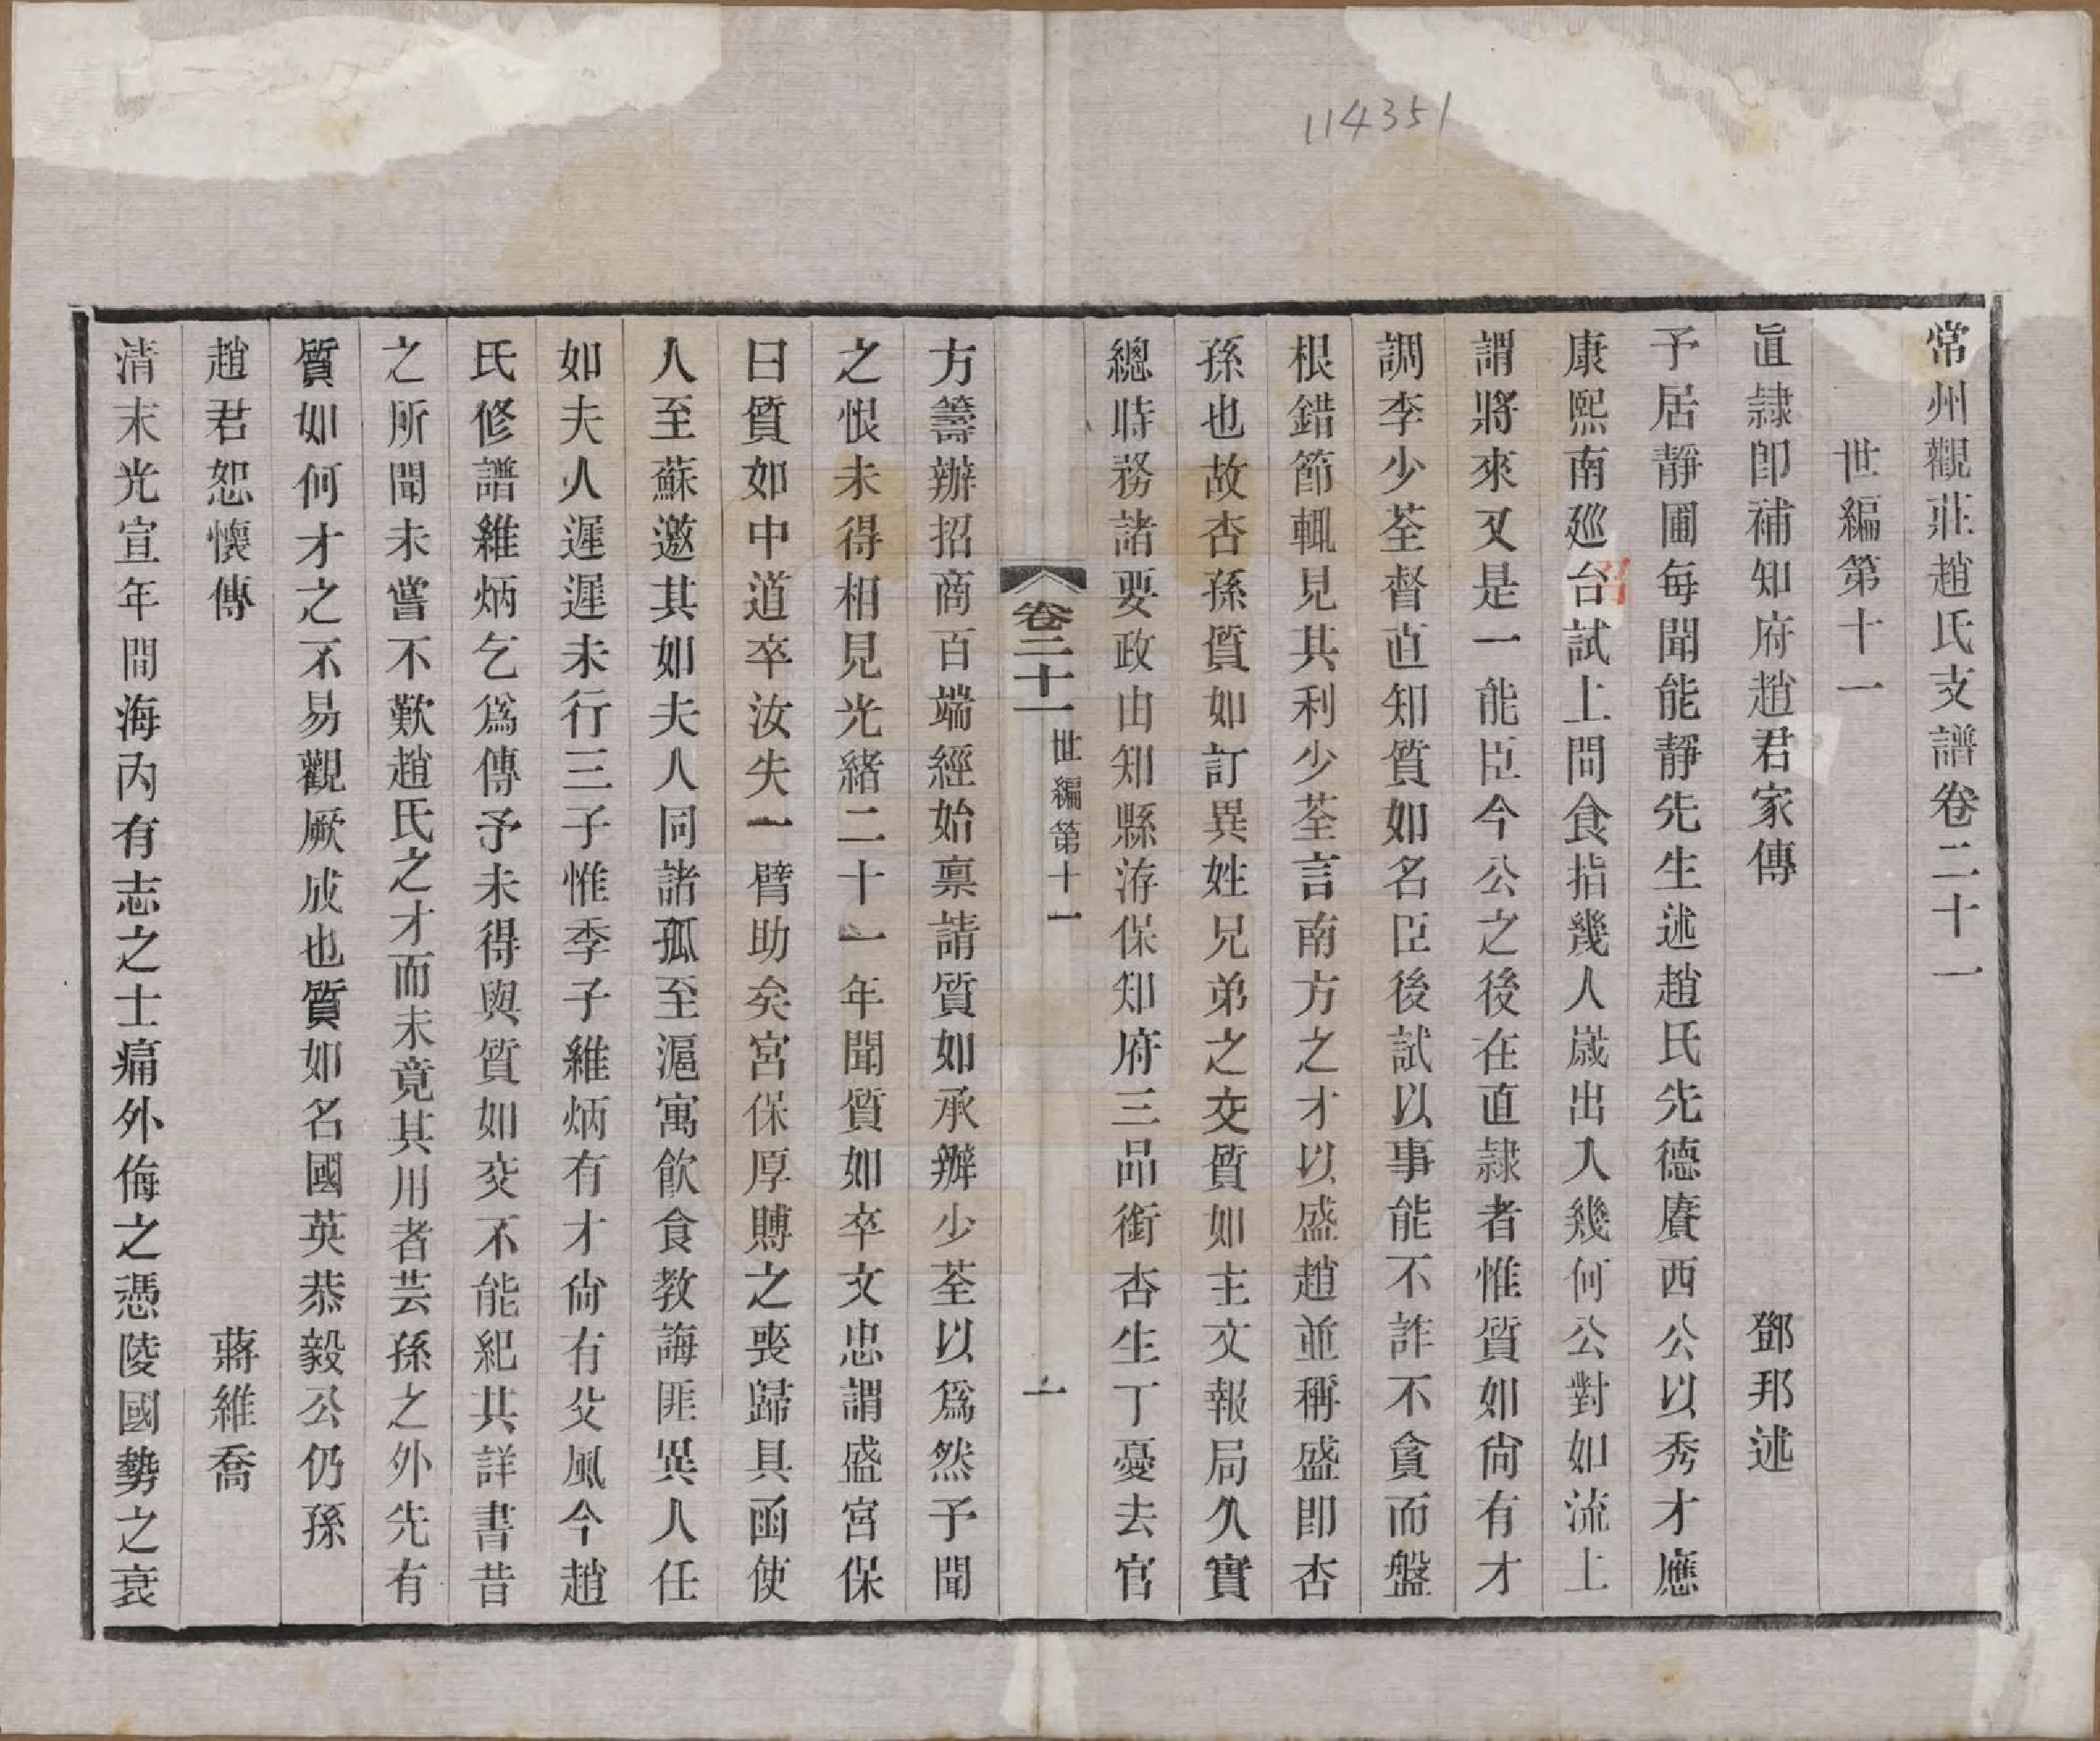 114351
常州觀莊趙氏支譜卷二十一
世編第十一
直隸卽補知府趙君家傳　鄧邦述
予居靜圃每聞能靜先生述趙氏先德賡西公以秀才應
康熙南廵台試上問食指幾人歲出入幾何公對如流上
謂將來又是一能臣今公之後在直隸者惟質如尙有才
調李少荃督直知質如名臣後試以事能不詐不貪而盤
根錯節輒見其利少荃言南方之才以盛趙並稱盛卽杏
孫也故杏孫質如訂異姓兄弟之交質如主文報局久實
總時務諸要政由知縣洊保知府三品銜杏生丁憂去官
卷二十一 世編第十一 一
方籌辦招商百端經始禀請質如承辦少荃以爲然予聞
之恨未得相見光緒二十一年聞質如卒文忠謂盛宮保
曰質如中道卒汝失一臂助矣宮保厚賻之喪歸具函使
人至蘇邀其如夫人同諸孤至滬寓飮食敎誨匪異人任
如夫人遲遲未行三子惟季子維炳有才尙有父風今趙
氏修譜維炳乞爲傳予未得與質如交不能紀其詳書昔
之所聞未嘗不歎趙氏之才而未竟其用者芸孫之外先有
質如何才之不易觀厥成也質如名國英恭毅公仍孫
趙君恕懷傳　蔣維喬
清末光宣年間海內有志之士痛外侮之憑陵國勢之衰